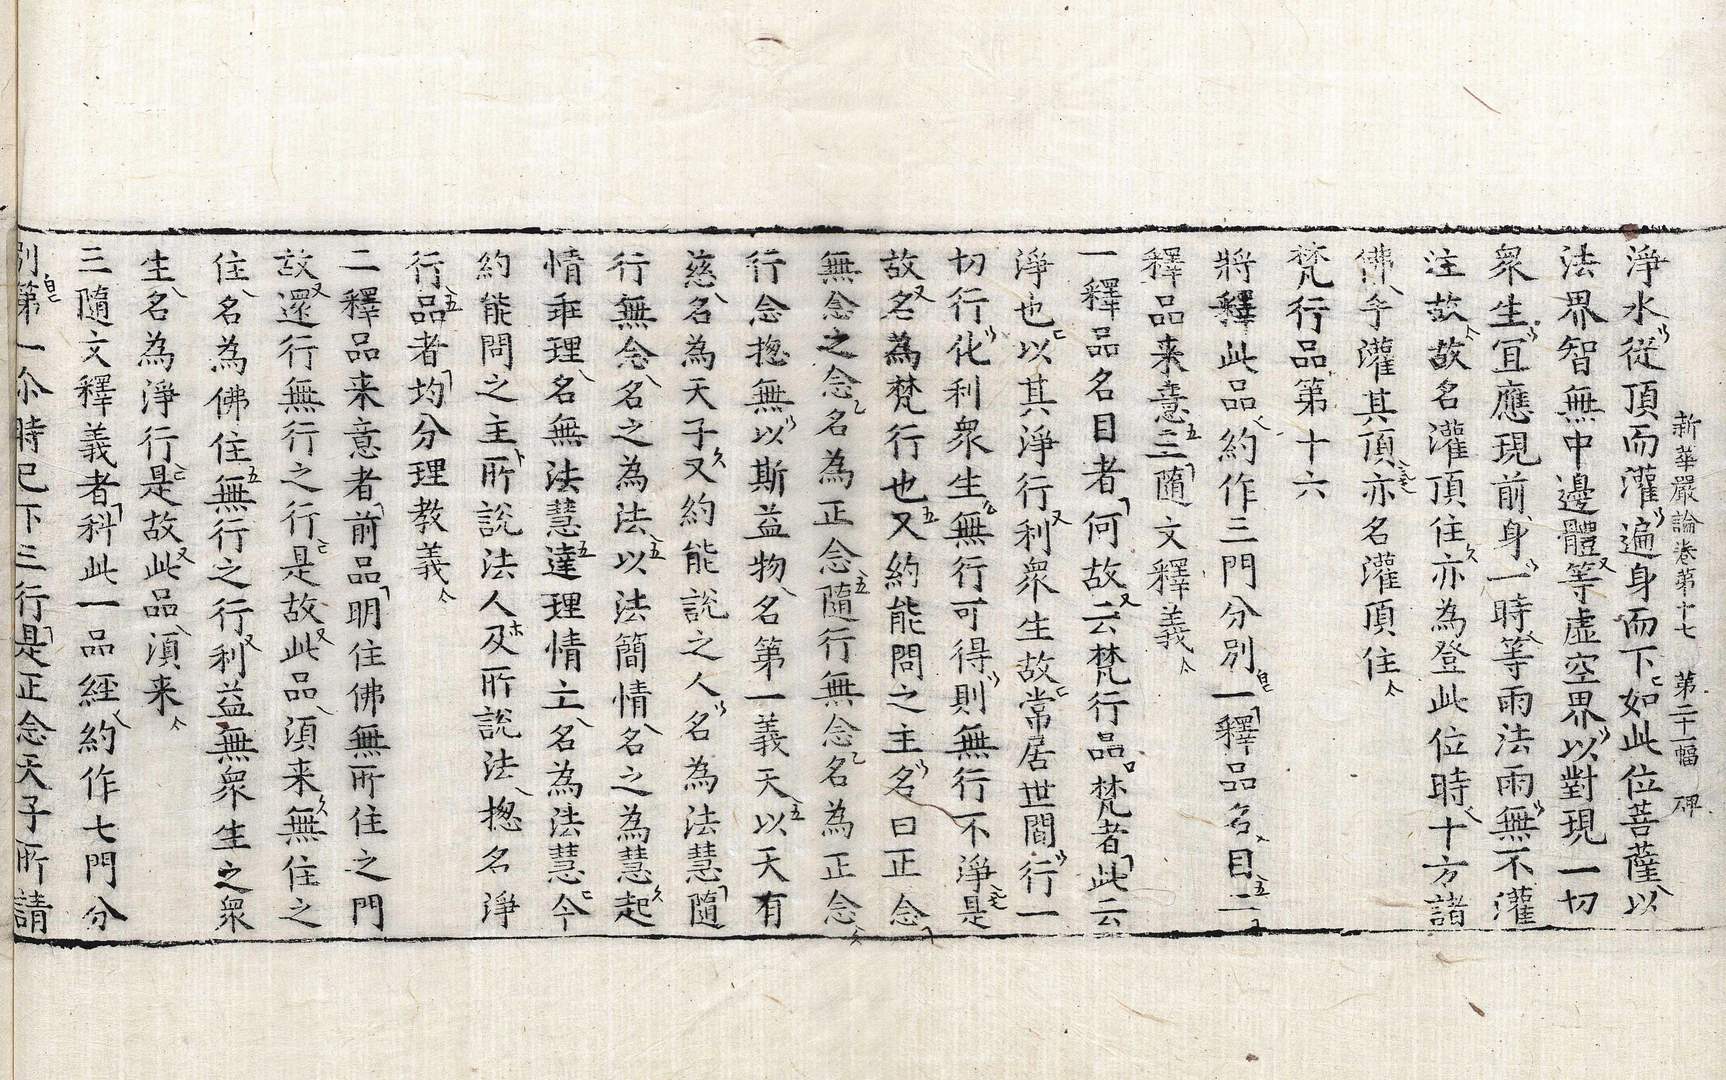 新華嚴論卷第十七 第二十一幅 碑
淨水從頂而灌遍身而下如此位菩薩以
法界智無中邊體等虛空界以對現一切
衆生冝應現前身一時等雨法雨無不灌
注故故名灌頂住亦為登此位時十方諸
佛手灌其頂亦名灌頂住
梵行品第十六
將釋此品約作三門分別一釋品名目二
釋品来意三隨文釋義
一釋品名目者何故云梵行品梵者此云
淨也以其淨行利衆生故常居世間行一
切行化利衆生無行可得則無行不淨是
故名為梵行也又約能問之主名曰正念
無念之念名為正念隨行無念名為正念
行念揔無以斯益物名第一義天以天有
慈名為天子又約能說之人名為法慧隨
行無念名之為法以法簡情名之為慧起
情乖理名無法慧達理情亡名為法慧今
約能問之主所說法人及所說法揔名淨
行品者均分理教義
二釋品来意者前品明住佛無所住之門
故還行無行之行是故此品湏来無住之
住名為佛住無行之行利益無衆生之衆
生名為淨行是故此品湏来
三隨文釋義者科此一品經約作七門分
別第一尒時已下三行是正念天子所請